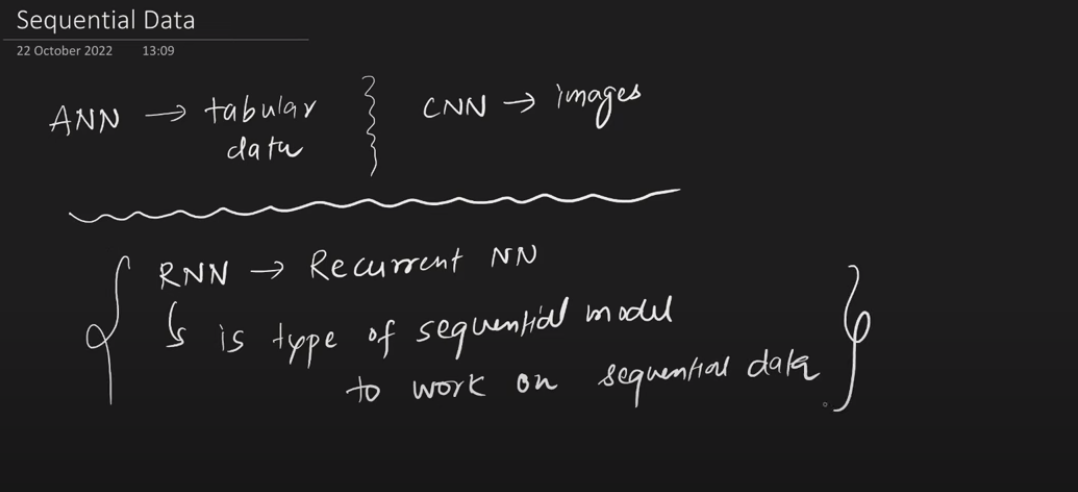 Sequential Data
22 October 2022 13:09
ANN → tabular data
CNN → images
RNN → Recurrent NN
↳ is type of sequential model
to work on sequential data.